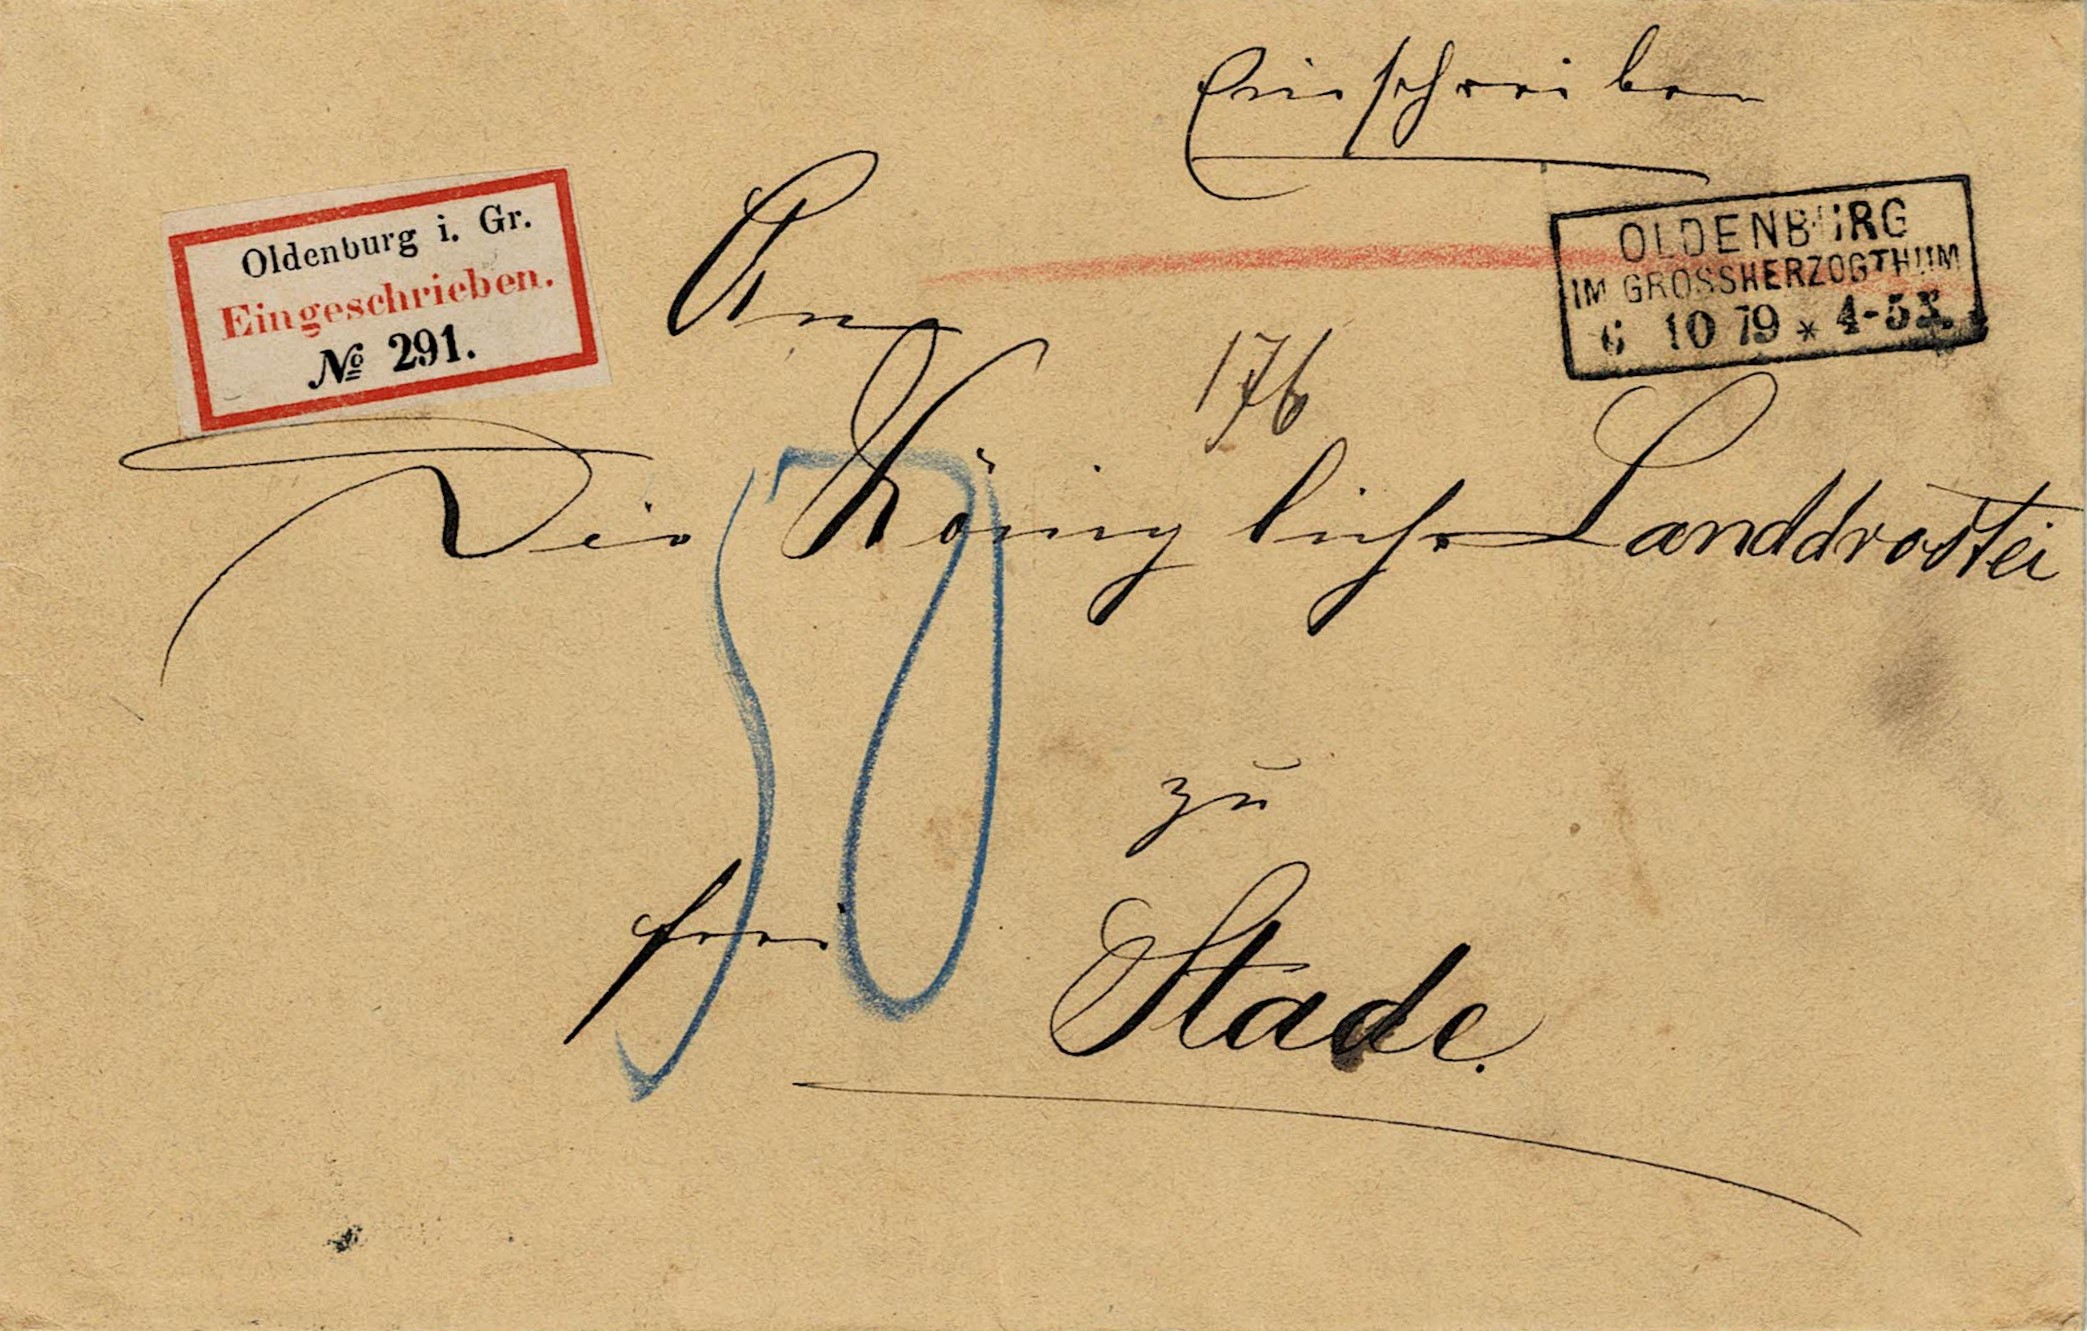 Einschreiben
Oldenburg i. Gr.
Eingeschrieben.
№ 291.
OLDENBURG
IM GROSSHERZOGTHUM
6 10 79 * 4-5N.
An
176
Die Königliche Landdrostei
50
zu
frei
Stade.